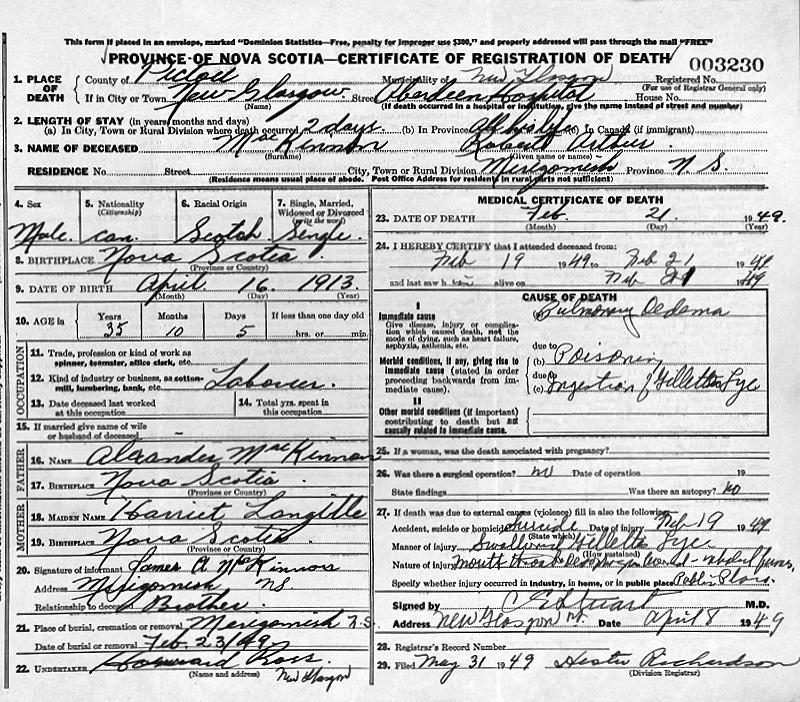 This form if placed in an envelope, marked "Dominion Statistics—Free, penalty for improper use $300," and properly addressed will pass through the mail "FREE"
PROVINCE OF NOVA SCOTIA—CERTIFICATE OF REGISTRATION OF DEATH
003230
1. PLACE OF DEATH
County of Pictou Municipality of New Glasgow Registered No.
(For use of Registrar General only)
If in City or Town New Glasgow Street Aberdeen Hospital House No.
(Name) (If death occurred in a hospital or institution, give the name instead of street and number)
2. LENGTH OF STAY (in years months and days)
(a) In City, Town or Rural Division where death occurred 2 days (b) In Province All his life (c) In Canada (if immigrant)
3. NAME OF DECEASED MacKinnon Robert Arthur
(Surname) (Given name or names)
RESIDENCE No. Street City, Town or Rural Division Merigomish Province N S
(Residence means usual place of abode. Post Office Address for residents in rural parts not sufficient)
4. Sex Male
5. Nationality (Citizenship) Can.
6. Racial Origin Scotch
7. Single, Married, Widowed or Divorced (write the word) Single
8. BIRTHPLACE Nova Scotia
(Province or Country)
9. DATE OF BIRTH April 16 1913
(Month) (Day) (Year)
10. AGE in Years Months Days If less than one day old
35 10 5 hrs. or min.
OCCUPATION
11. Trade, profession or kind of work as
spinner, teamster, office clerk, etc.
12. Kind of industry or business, as cotton-
mill, lumbering, bank, etc. Labourer
13. Date deceased last worked
at this occupation
14. Total yrs. spent in
this occupation
15. If married give name of wife
or husband of deceased –
FATHER
16. NAME Alexander MacKinnon
17. BIRTHPLACE Nova Scotia
(Province or Country)
MOTHER
18. MAIDEN NAME Harriet Langille
19. BIRTHPLACE Nova Scotia
(Province or Country)
20. Signature of informant James A MacKinnon
Address Merigomish NS
Relationship to deceased Brother
21. Place of burial, cremation or removal Merigomish N.S.
Date of burial or removal Feb 23/49
22. UNDERTAKER Howard Ross
(Name and address) New Glasgow
MEDICAL CERTIFICATE OF DEATH
23. DATE OF DEATH Feb. 21 1949
(Month) (Day) (Year)
24. I HEREBY CERTIFY that I attended deceased from:
Feb 19 1949 to Feb 21 1949
and last saw him alive on Feb 21 1949
CAUSE OF DEATH
I
Immediate cause
Give disease, injury or complica-
tion which caused death, not the
mode of dying, such as heart failure,
asphyxia, asthenia, etc.
Pulmonary Oedema
due to
Morbid conditions, if any, giving rise to
immediate cause (stated in order
proceeding backwards from im-
mediate cause).
(b) Poisoning
due to
(c) Ingestion of Gilletts Lye
II
Other morbid conditions (if important)
contributing to death but not
causally related to immediate cause.
25. If a woman, was the death associated with pregnancy?
26. Was there a surgical operation? no Date of operation 19
State findings Was there an autopsy? no
27. If death was due to external causes (violence) fill in also the following:
Accident, suicide or homicide Suicide Date of injury Feb 19 1949
(State which)
Manner of injury Swallowed Gilletts Lye
(How sustained)
Nature of injury mouth throat
Specify whether injury occurred in industry, in home, or in public place Public Place
Signed by M.D.
Address New Glasgow Date April 8 1949
28. Registrar's Record Number
29. Filed May 31 1949 Hester Richardson
(Division Registrar)